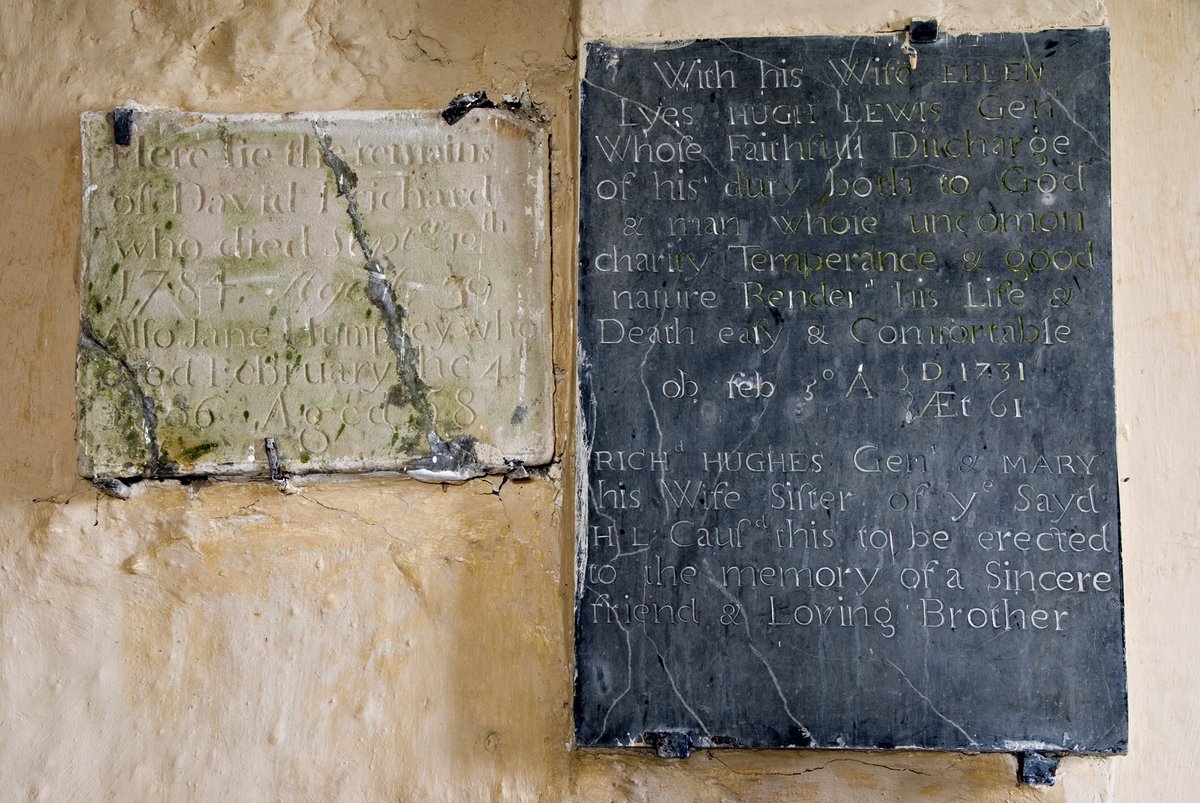 Here lie the remains
of David Prichard
who died Septer 19th
1784 Aged 39
Alſo Jane Humphrey who
died February the 4
Aged 58
With his Wife ELLEN
Lyes HUGH LEWIS Gent
Whoſe Faithfull Diſcharge
of his duty both to God
& man whoſe uncomon
charity Temperance & good
nature Renderd his Life &
Death eaſy & Comfortable
ob feb 5o A D 1731
Æt 61
RICHd HUGHES Gent & MARY
his Wife Siſter of ye Sayd
H L Cauſd this to be erected
to the memory of a Sincere
friend & Loving Brother